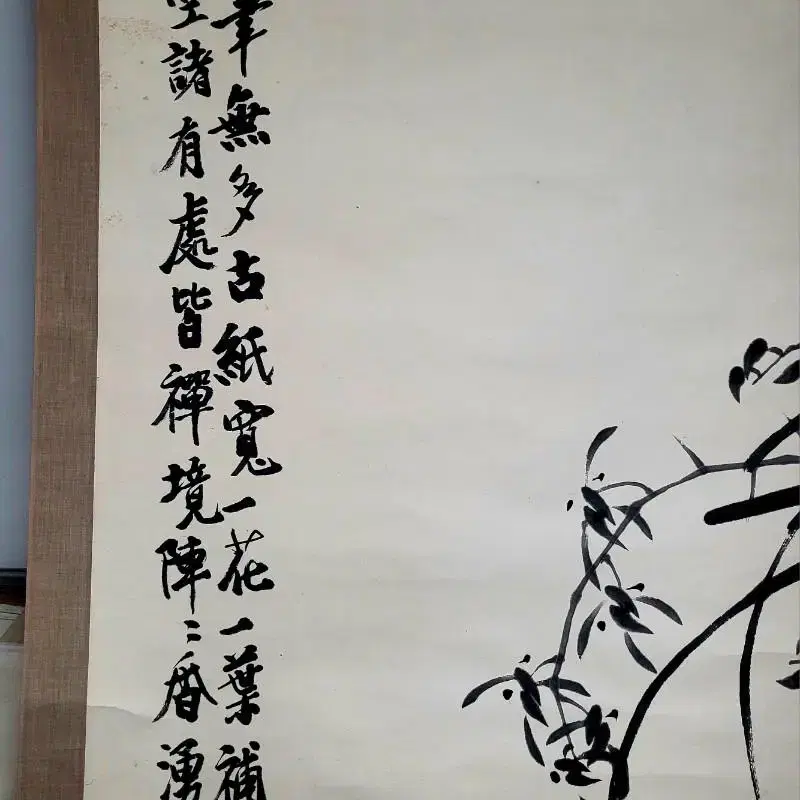 筆無多古紙寬一花一葉補
空諸有處皆禪境陣〻香湧